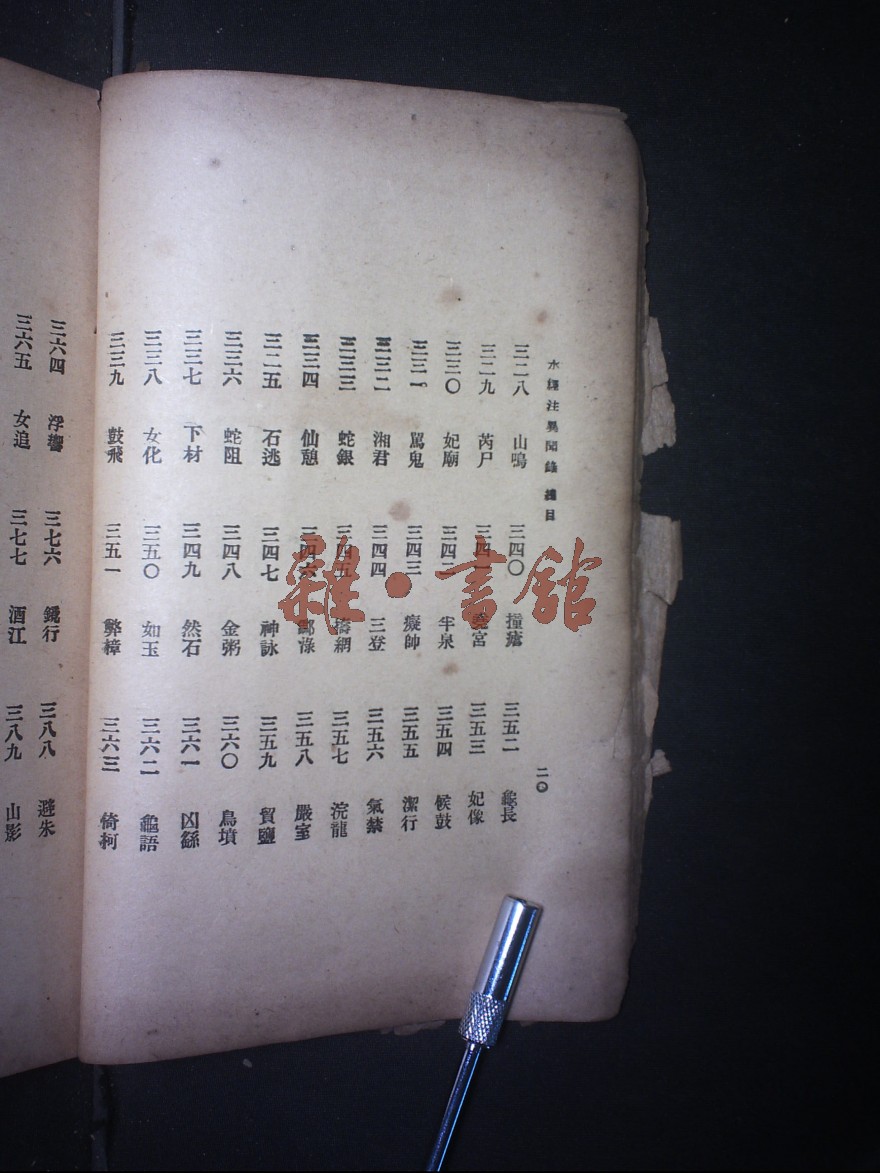 水經注異聞錄 總目
二〇
三二八 山鳴
三二九 芮尸
三三〇 妃廟
三三一 罵鬼
三三二 湘君
三三三 蛇銀
三三四 仙憩
三三五 石逃
三三六 蛇阻
三三七 下材
三三八 女化
三三九 鼓飛
三四〇 撞瘡
三四一 宮
三四二 泉
三四三 癡帥
三四四 三登
三四五 網
三四六
三四七 神詠
三四八 金粥
三四九 然石
三五〇 如玉
三五一 弊樟
三五二 龜長
三五三 妃像
三五四 候鼓
三五五 潔行
三五六 氣禁
三五七 浣龍
三五八 嚴室
三五九 貿鹽
三六〇 鳥墳
三六一 凶絲
三六二 龜語
三六三 倚柯
三六四 浮響
三六五 女追
三七六 行
三七七 酒江
三八八 避朱
三八九 山影
雜·書館